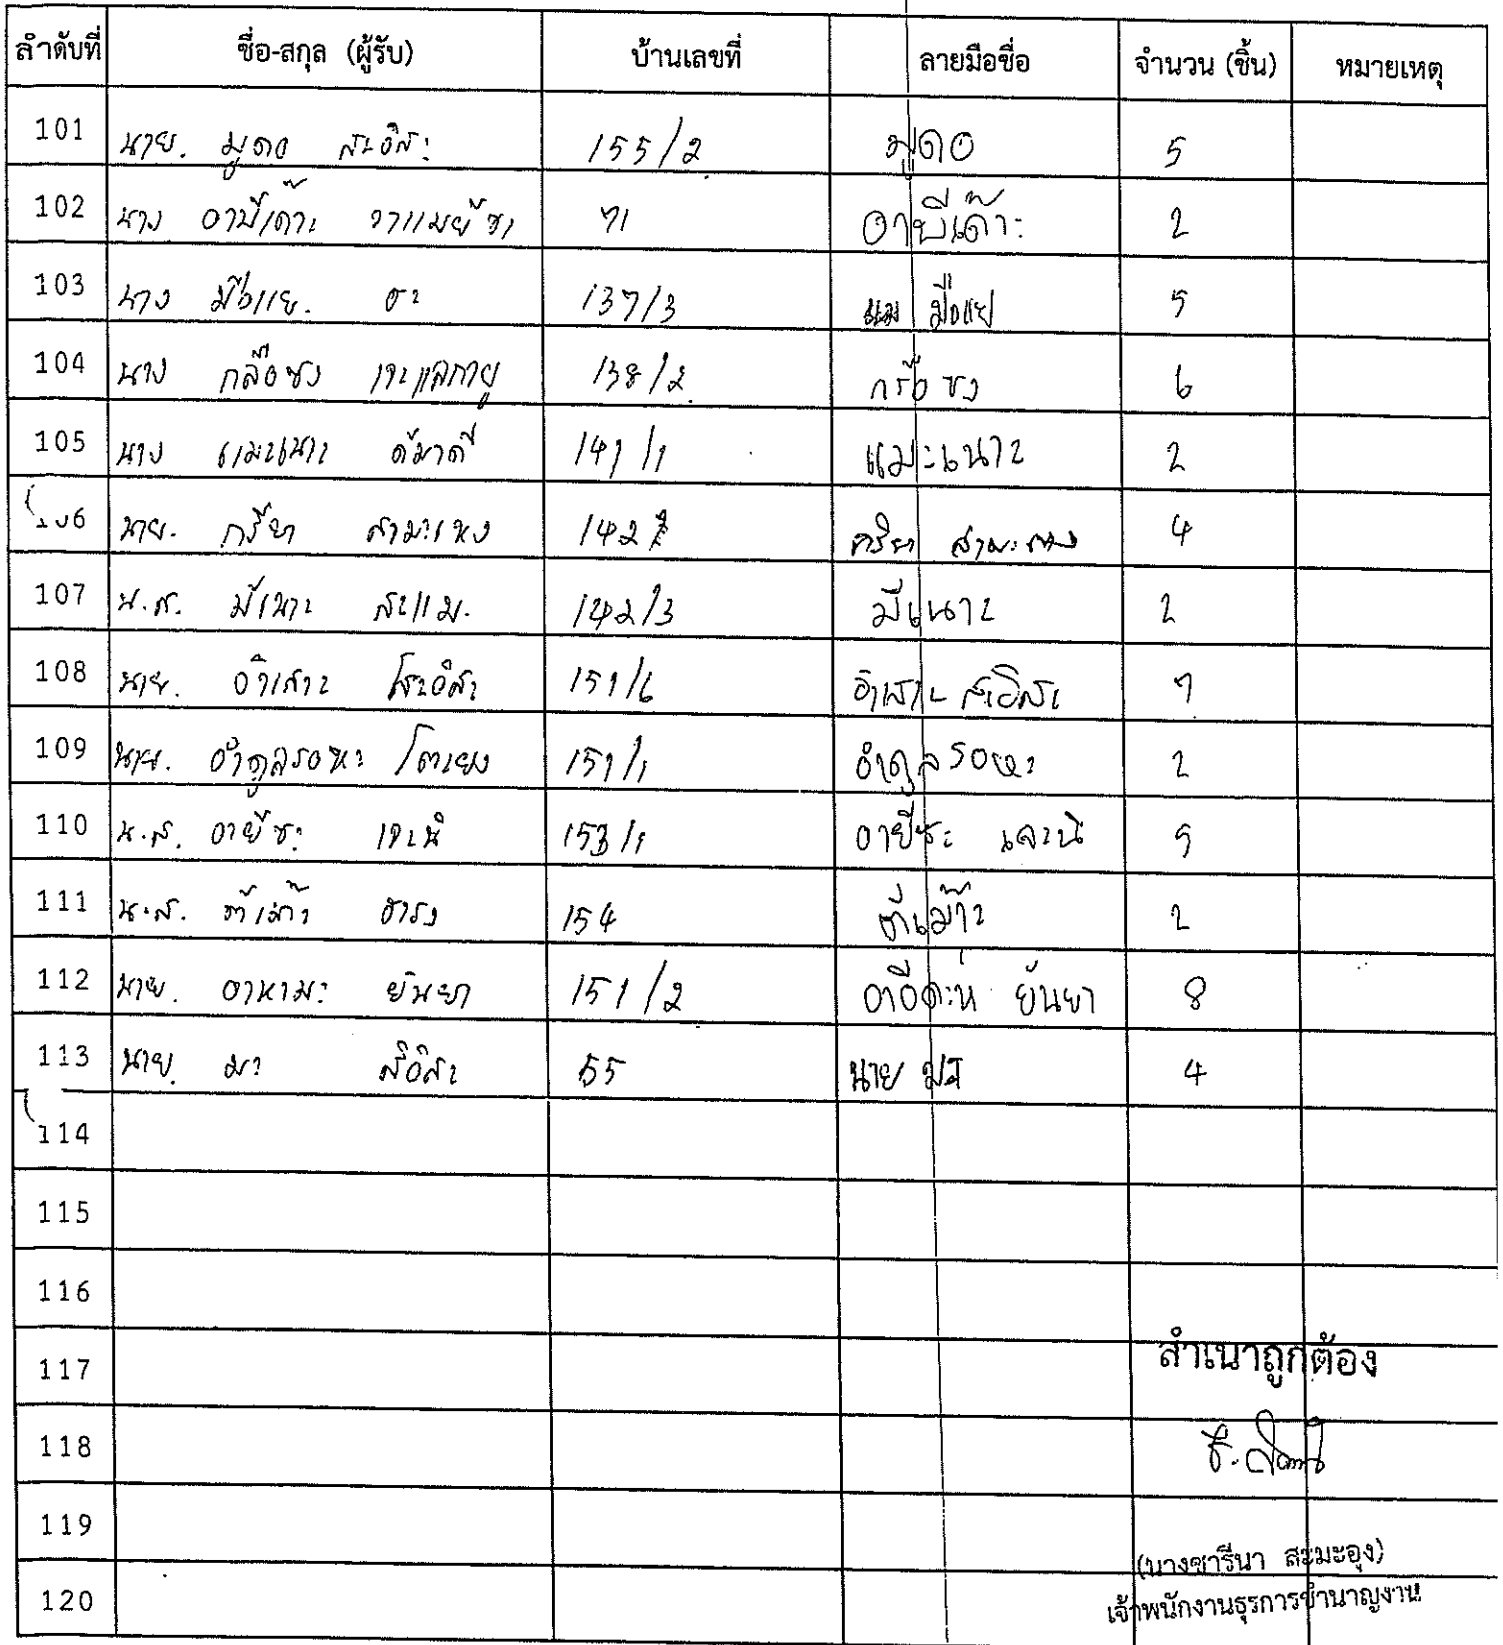 ลำดับที่ ชื่อ-สกุล (ผู้รับ) บ้านเลขที่ ลายมือชื่อ จำนวน (ชิ้น) หมายเหตุ
101 นาย. มูดอ สะอิสะ 155/2 มูดอ 5
102 นาง อาบีเด๊าะ 71 อาบีเด๊าะ 2
103 นาง มือแย. 137/3 แม มือแย 5
104 นาง กลือซง เจะแลกายู 138/2 กรือซง 6
105 นาง แมะเนาะ 141/1 แมะเนาะ 2
106 นาย. กรียา สามะแห 142 กรียา 4
107 น.ส. มีเนาะ สะแม. 142/3 มีเนาะ 2
108 นาย. อำเสาะ 151/6 อำเสาะ สะอิสะ 7
109 นาย. อำดูลรอหะ โตะเยง 151/1 อำดูลรอหะ 2
110 น.ส. อายีซะ เจะนิ 153/1 อายีซะ เจะนิ 5
111 น.ส. 154 2
112 นาย. อาหามะ ยันยา 151/2 ยันยา 8
113 นาย. มะ สือิสะ 55 นาย มะ 4
114
115
116
117 สำเนาถูกต้อง
118
119
(นางซารีนา สะมะอุง)
120 เจ้าพนักงานธุรการชำนาญงาน